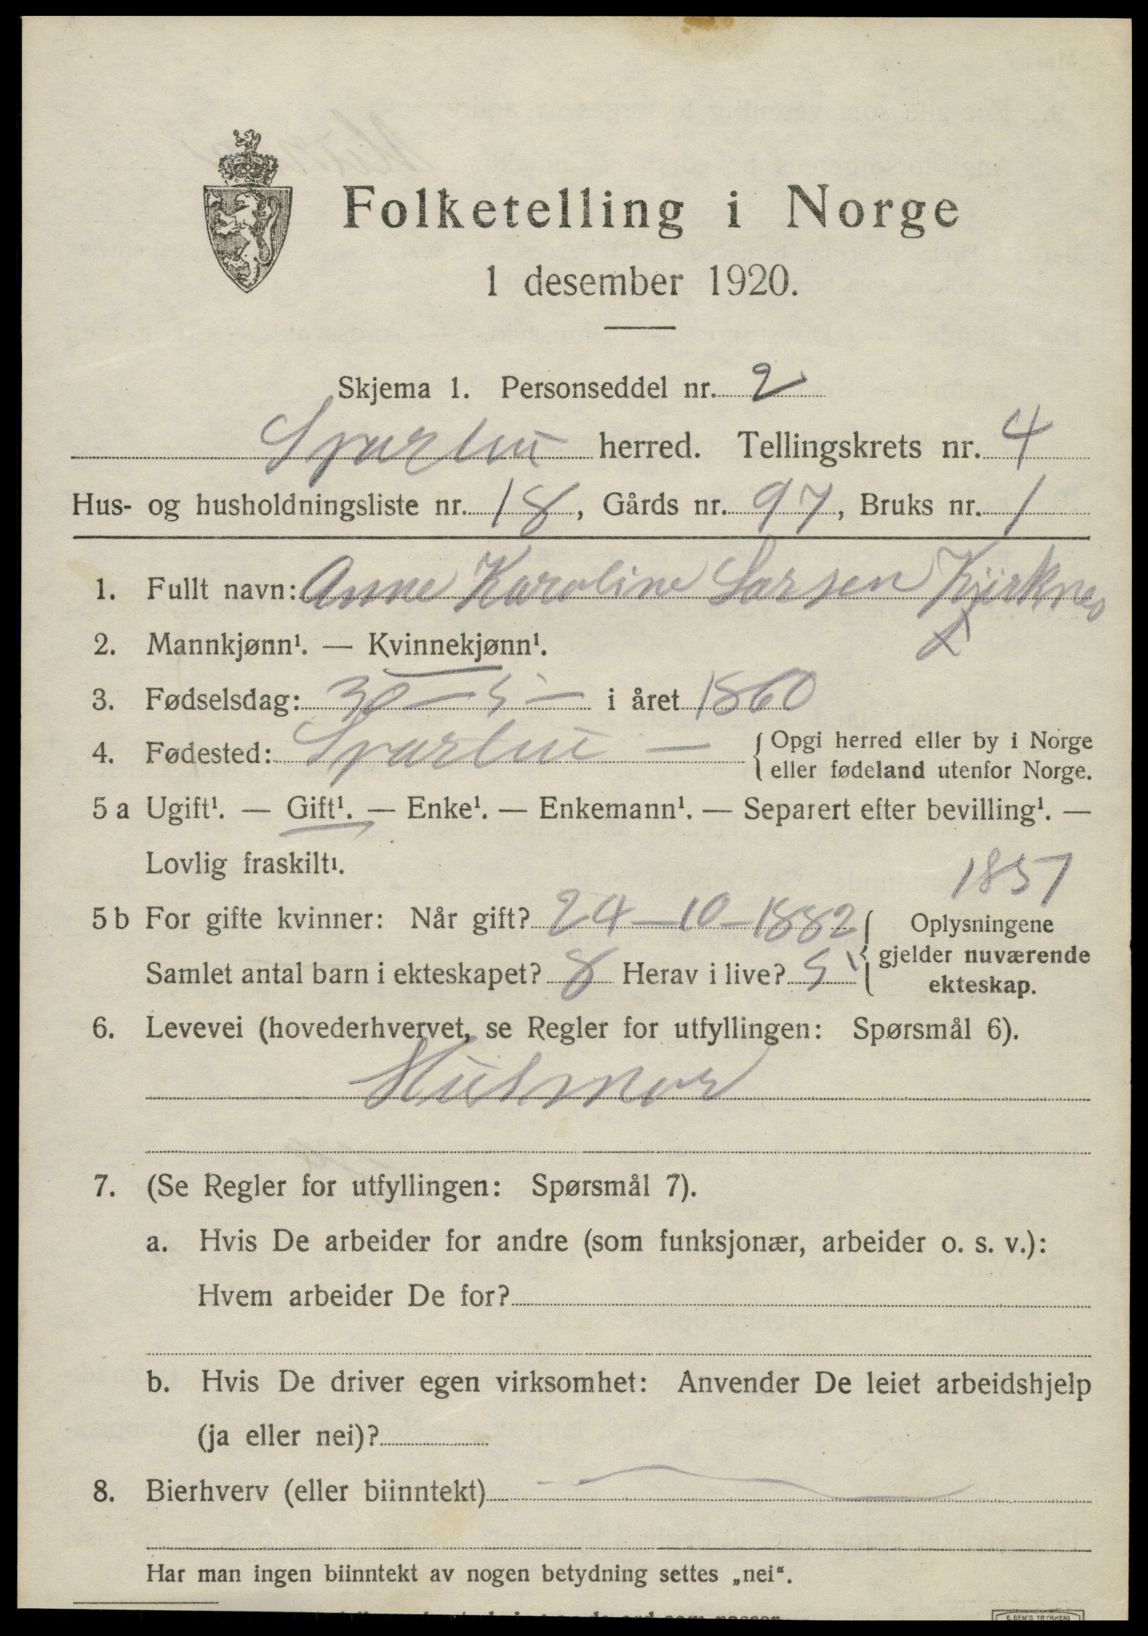 Folketelling i Norge
1 desember 1920.
Skjema 1. Personseddel nr. 2
Sparbu herred. Tellingskrets nr. 4
Hus- og husholdningsliste nr. 18, Gårds nr. 97, Bruks nr. 1
1. Fullt navn: Anne Karoline Larsen Kirknes
2. Mannkjønn¹. — Kvinnekjønn¹.
3. Fødselsdag: 30 — 5 — i året 1860
4. Fødested: Sparbu — { Opgi herred eller by i Norge
eller fødeland utenfor Norge.
5 a Ugift¹. — Gift¹. — Enke¹. — Enkemann¹. — Separert efter bevilling¹. —
Lovlig fraskilt¹.
1857
5 b For gifte kvinner: Når gift? 24 — 10 — 1882 { Oplysningene
gjelder nuværende
ekteskap.
Samlet antal barn i ekteskapet? 8 Herav i live? 5
6. Levevei (hovederhvervet, se Regler for utfyllingen: Spørsmål 6).
Husmor
7. (Se Regler for utfyllingen: Spørsmål 7).
a. Hvis De arbeider for andre (som funksjonær, arbeider o. s. v.):
Hvem arbeider De for?
b. Hvis De driver egen virksomhet: Anvender De leiet arbeidshjelp
(ja eller nei)?
8. Bierhverv (eller biinntekt) —
Har man ingen biinntekt av nogen betydning settes „nei“.